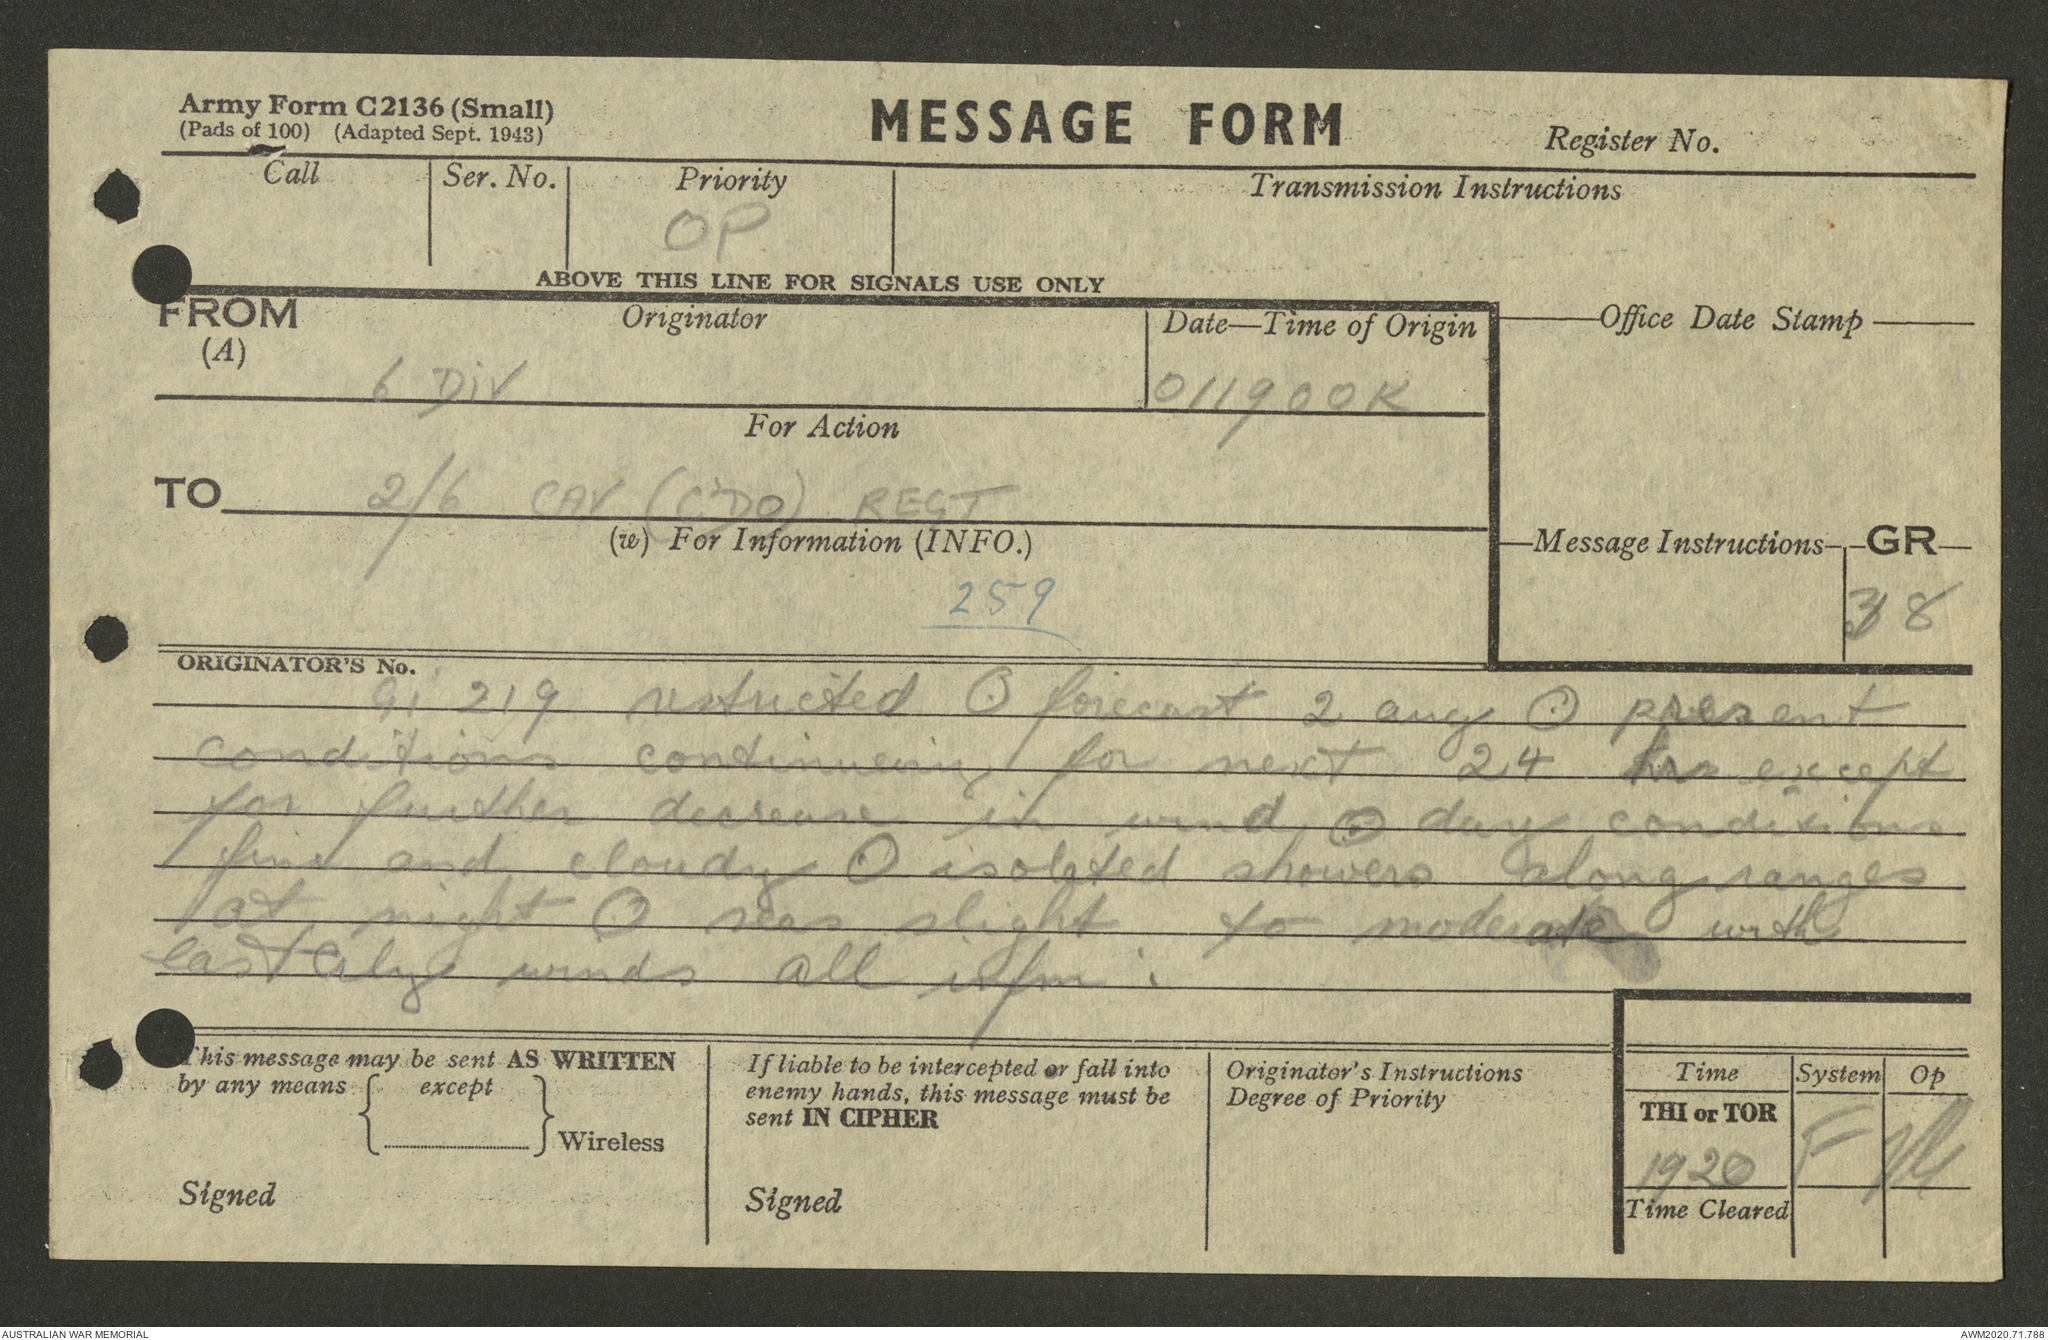 Army Form C2136 (Small)
(Pads of 100) (Adapted Sept. 1943)
MESSAGE FORM
Register No.
Call
Ser. No.
Priority
OP
Transmission Instructions
ABOVE THIS LINE FOR SIGNALS USE ONLY
FROM
(A)
Originator
6 DIV
Date—Time of Origin
011900K
Office Date Stamp
For Action
TO 2/6 CAV (C'DO) REGT
(w) For Information (INFO.)
259
Message Instructions
GR
38
ORIGINATOR'S No.
GI 219 restricted ⊙ forecast 2 aug ⊙ present
conditions continueing for next 24 hrs except
for further decrease in wind ⊙ day conditions
fine and cloudy ⊙ isolated showers along ranges
at night ⊙ seas slight to moderate with
easterly winds all infm
This message may be sent AS WRITTEN
by any means { except } Wireless
Signed
If liable to be intercepted or fall into
enemy hands, this message must be
sent IN CIPHER
Signed
Originator's Instructions
Degree of Priority
Time System Op
THI or TOR
1920 F
Time Cleared
AUSTRALIAN WAR MEMORIAL
AWM2020.71.788